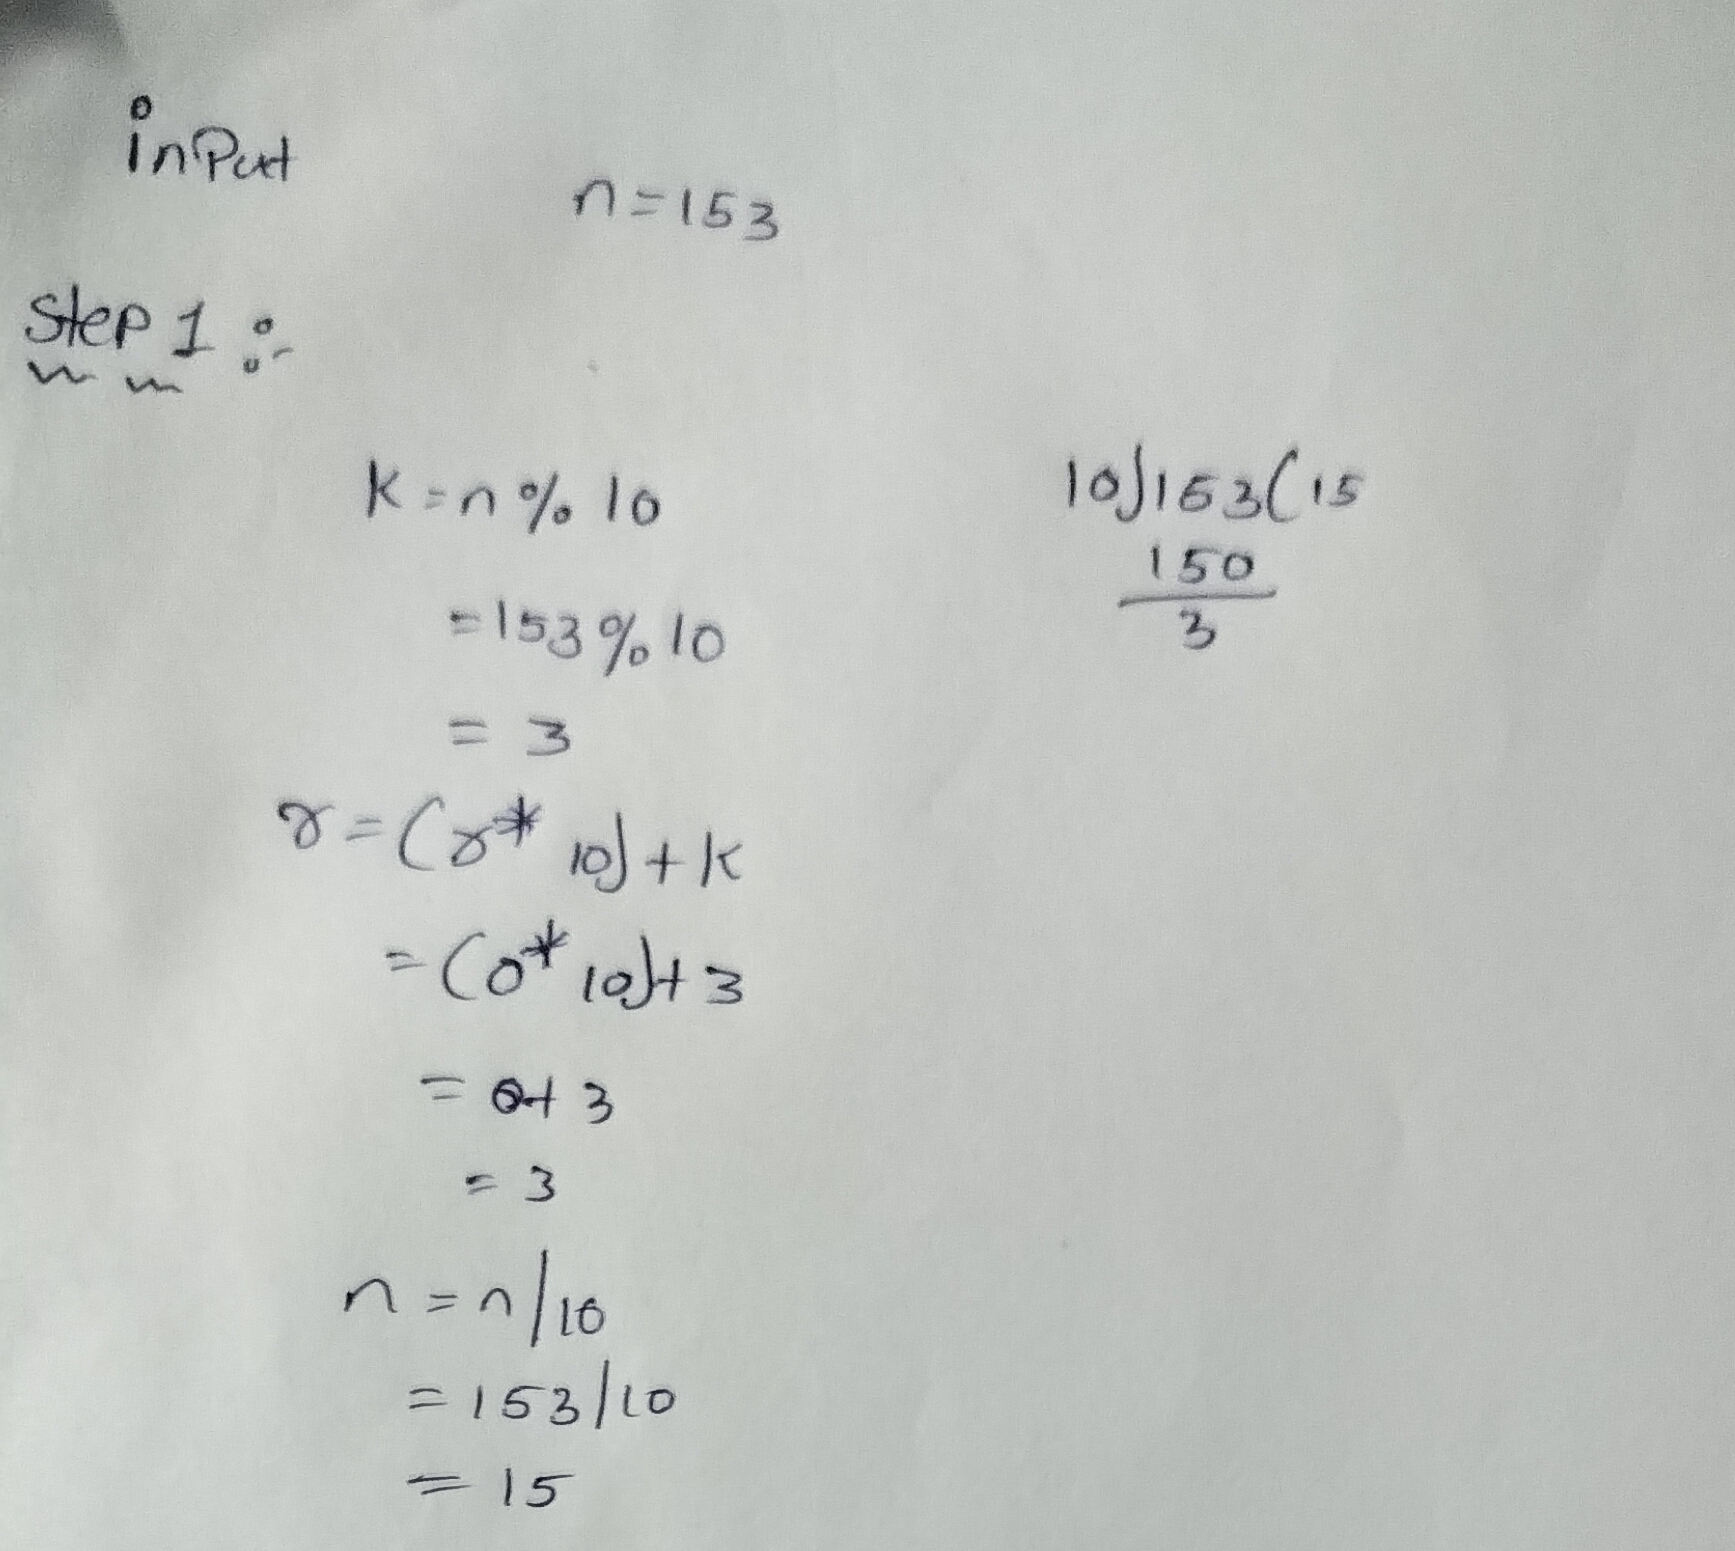 inPut
n=153
Step 1 :-
K=n%10
=153%10
= 3
r=(r*10)+K
=(0*10)+3
= 0+3
= 3
n=n/10
=153/10
= 15
10)153(15
150
3